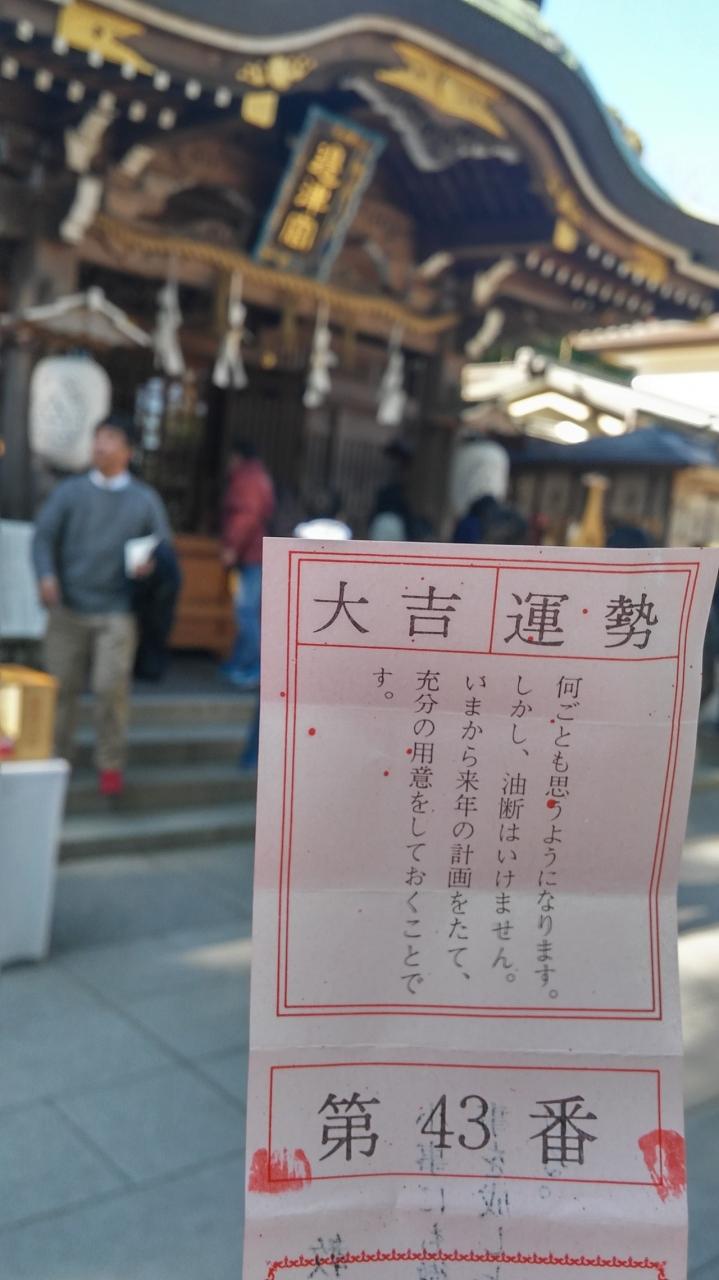 運勢
大吉
何ごとも思うようになります。
しかし、油断はいけません。
いまから来年の計画をたて、
充分の用意をしておくことで
す。
第43番